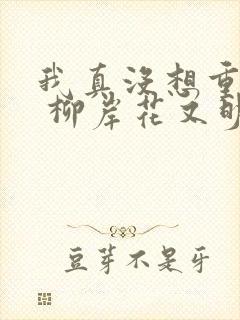 我真没想重
柳岸花又明
豆芽不是牙